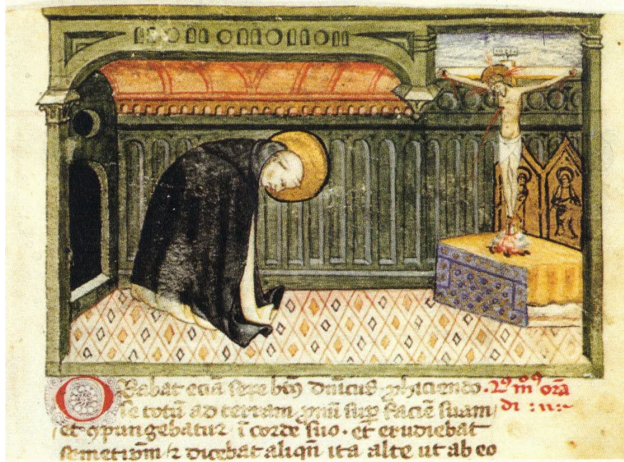 ORabat eciā sepe bt̄s dn̄icus ꝓhiciendo. 2⁹ m⁹ orā
se totū ad terram pnū sup faciē suam/ di :ıı:~
et ꝯpungebatur ī corde suo · et erudiebat
semetipm̄ ⁊ dicebat aliqn̄ ita alte ut ab eo